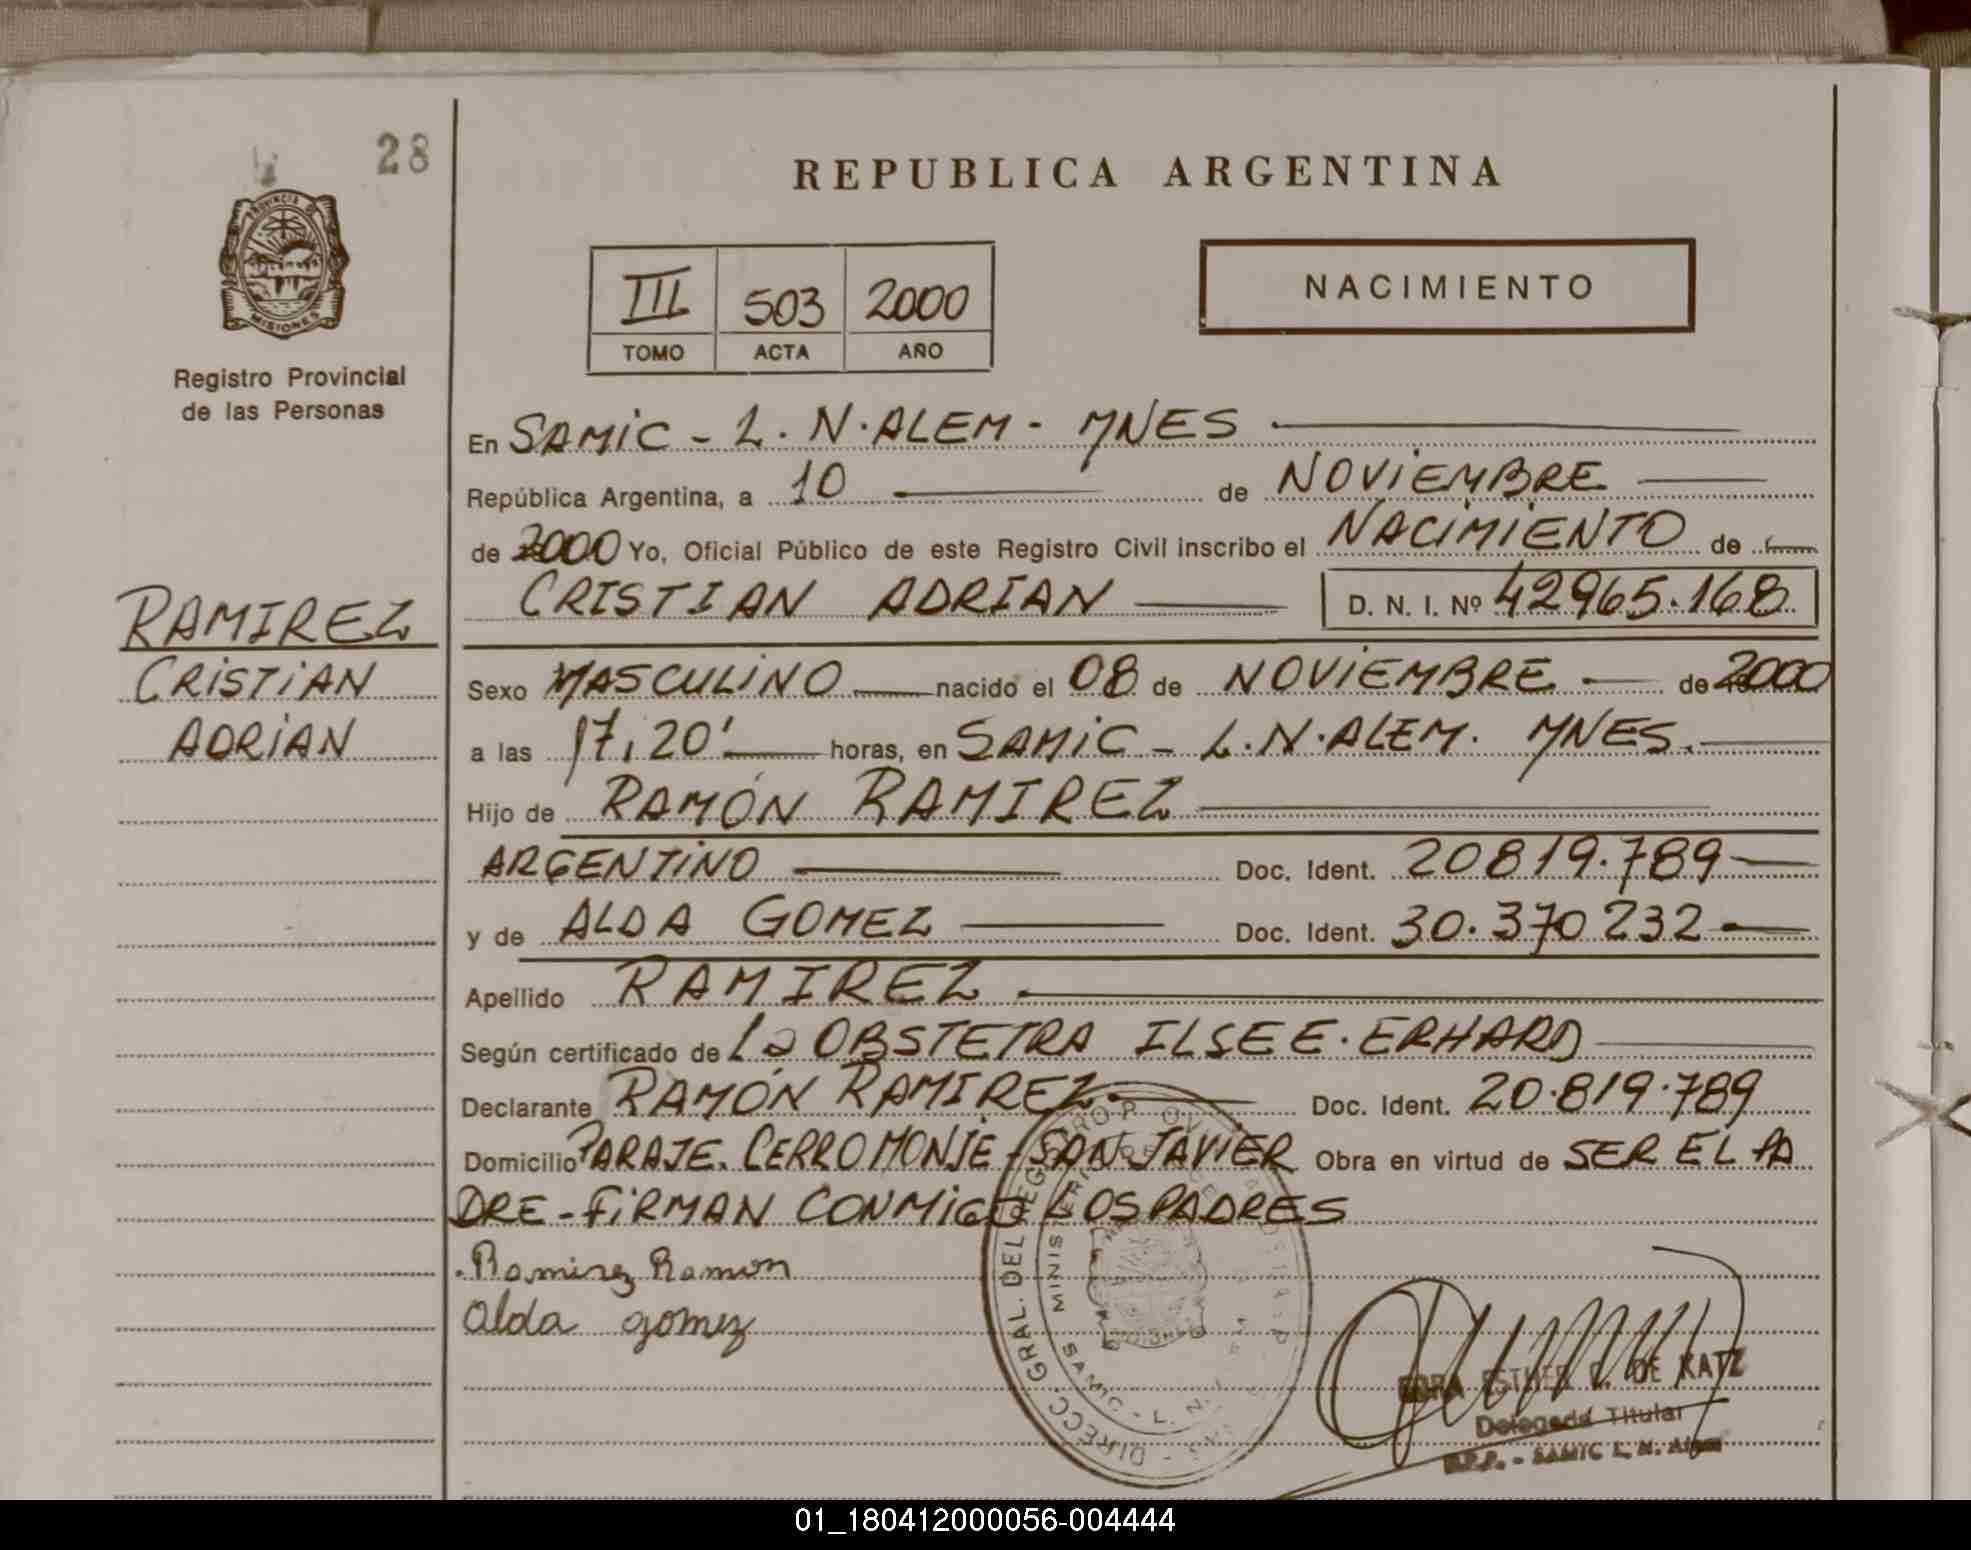 28
REPUBLICA ARGENTINA
PROVINCIA DE
MISIONES
III 503 2000
TOMO ACTA AÑO
NACIMIENTO
Registro Provincial
de las Personas
En SAMIC - L. N. ALEM - MNES
República Argentina, a 10 de NOVIEMBRE
de 2000 Yo, Oficial Público de este Registro Civil inscribo el NACIMIENTO de
CRISTIAN ADRIAN D. N. I. Nº 42965.168
RAMIREZ
CRISTIAN
ADRIAN
Sexo MASCULINO nacido el 08 de NOVIEMBRE de 2000
a las 17,20' horas, en SAMIC - L. N. ALEM. MNES.
Hijo de RAMÓN RAMIREZ
ARGENTINO Doc. Ident. 20819.789
y de ALDA GOMEZ Doc. Ident. 30.370232
Apellido RAMIREZ.
Según certificado de La OBSTETRA ILSE E. ERHARD
Declarante RAMÓN RAMIREZ. Doc. Ident. 20.819.789
Domicilio PARAJE. CERRO MONJE - SAN JAVIER Obra en virtud de SER EL PA
DRE - FIRMAN CONMIGO LOS PADRES
Ramirez Ramon
alda gomez
DIRECC. GRAL. DEL REG.
MINISTERIO DE
SAMIC - L. N.
ESTHER DE KATZ
Delegada Titular
R.P.P. - SAMIC L. N. Alem
01_180412000056-004444